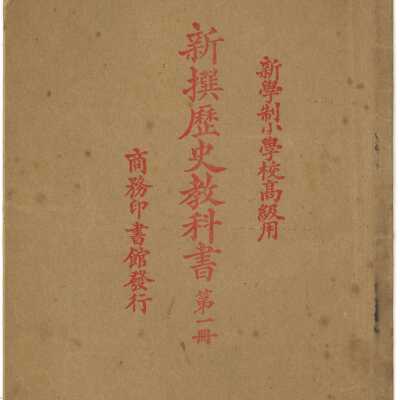 新學制小學校高級用
新撰歷史教科書 第一冊
商務印書館發行